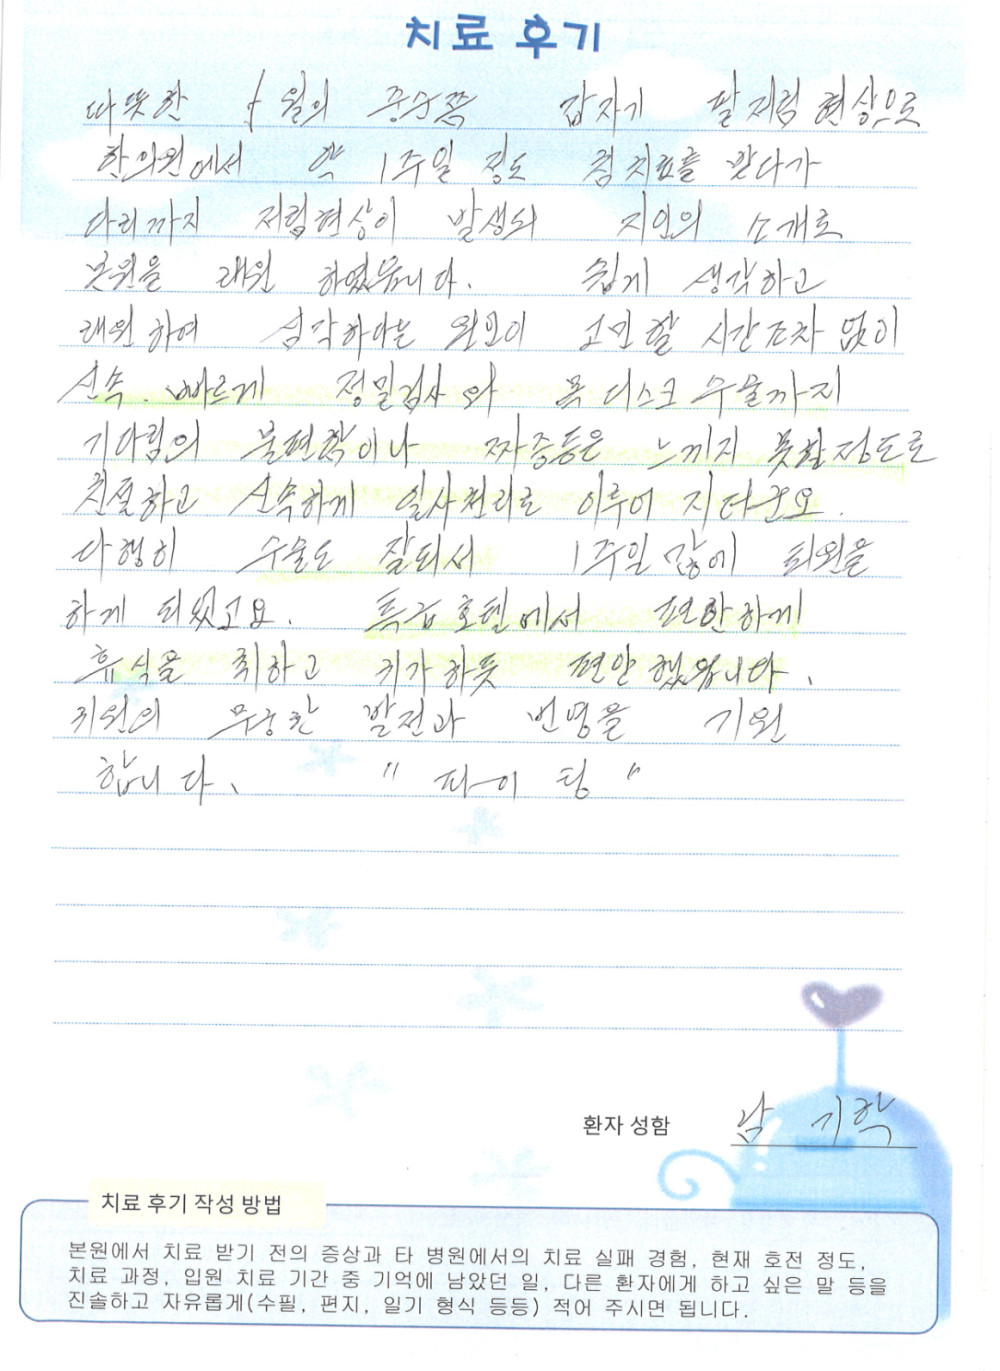 치료 후기
따뜻한 월의 중순쯤 갑자기 팔저림 현상으로
한의원에서 약 1주일 정도 침치료를 받다가
다리까지 저림현상이 발생되 지인의 소개로
본원을 래원 하였읍니다. 쉽게 생각하고
래원하여 심각하다는 원인이 고민할 시간조차 없이
신속. 빠르게 정밀검사와 목디스크 수술까지
기다림의 불편함이나 짜증등은 느끼지 못할정도로
친절하고 신속하게 일사천리로 이루어 지더군요.
다행히 수술도 잘되서 1주일 많에 퇴원을
하게 되었고요. 특급호텔에서 편안하게
휴식을 취하고 귀가하듯 편안했읍니다.
귀원의 무궁한 발전과 번영을 기원
합니다. " 파이팅 "
환자 성함 남기학
치료 후기 작성 방법
본원에서 치료 받기 전의 증상과 타 병원에서의 치료 실패 경험, 현재 호전 정도,
치료 과정, 입원 치료 기간 중 기억에 남았던 일, 다른 환자에게 하고 싶은 말 등을
진솔하고 자유롭게(수필, 편지, 일기 형식 등등) 적어 주시면 됩니다.